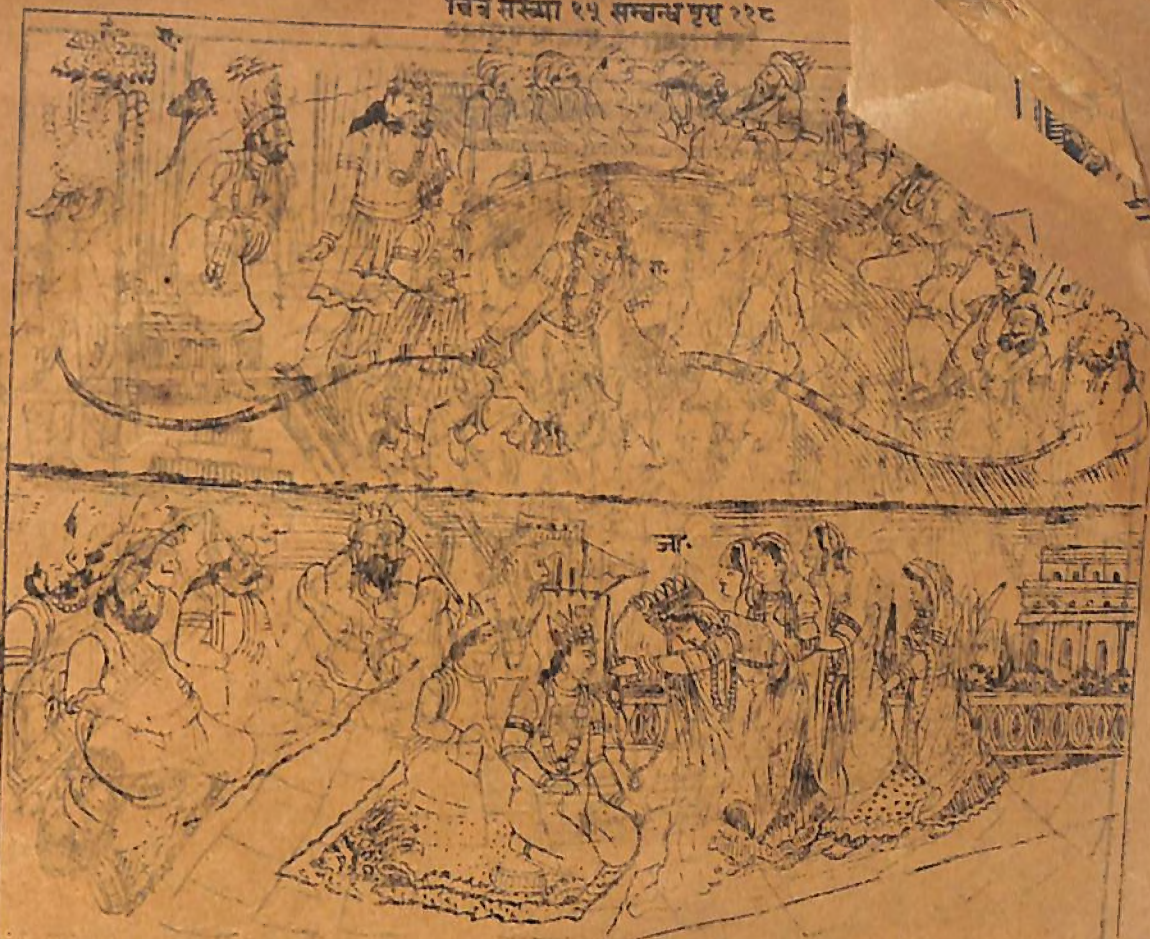 चित्र संख्या १५ सम्बन्ध पृष्ठ २१८
रा.
जा.